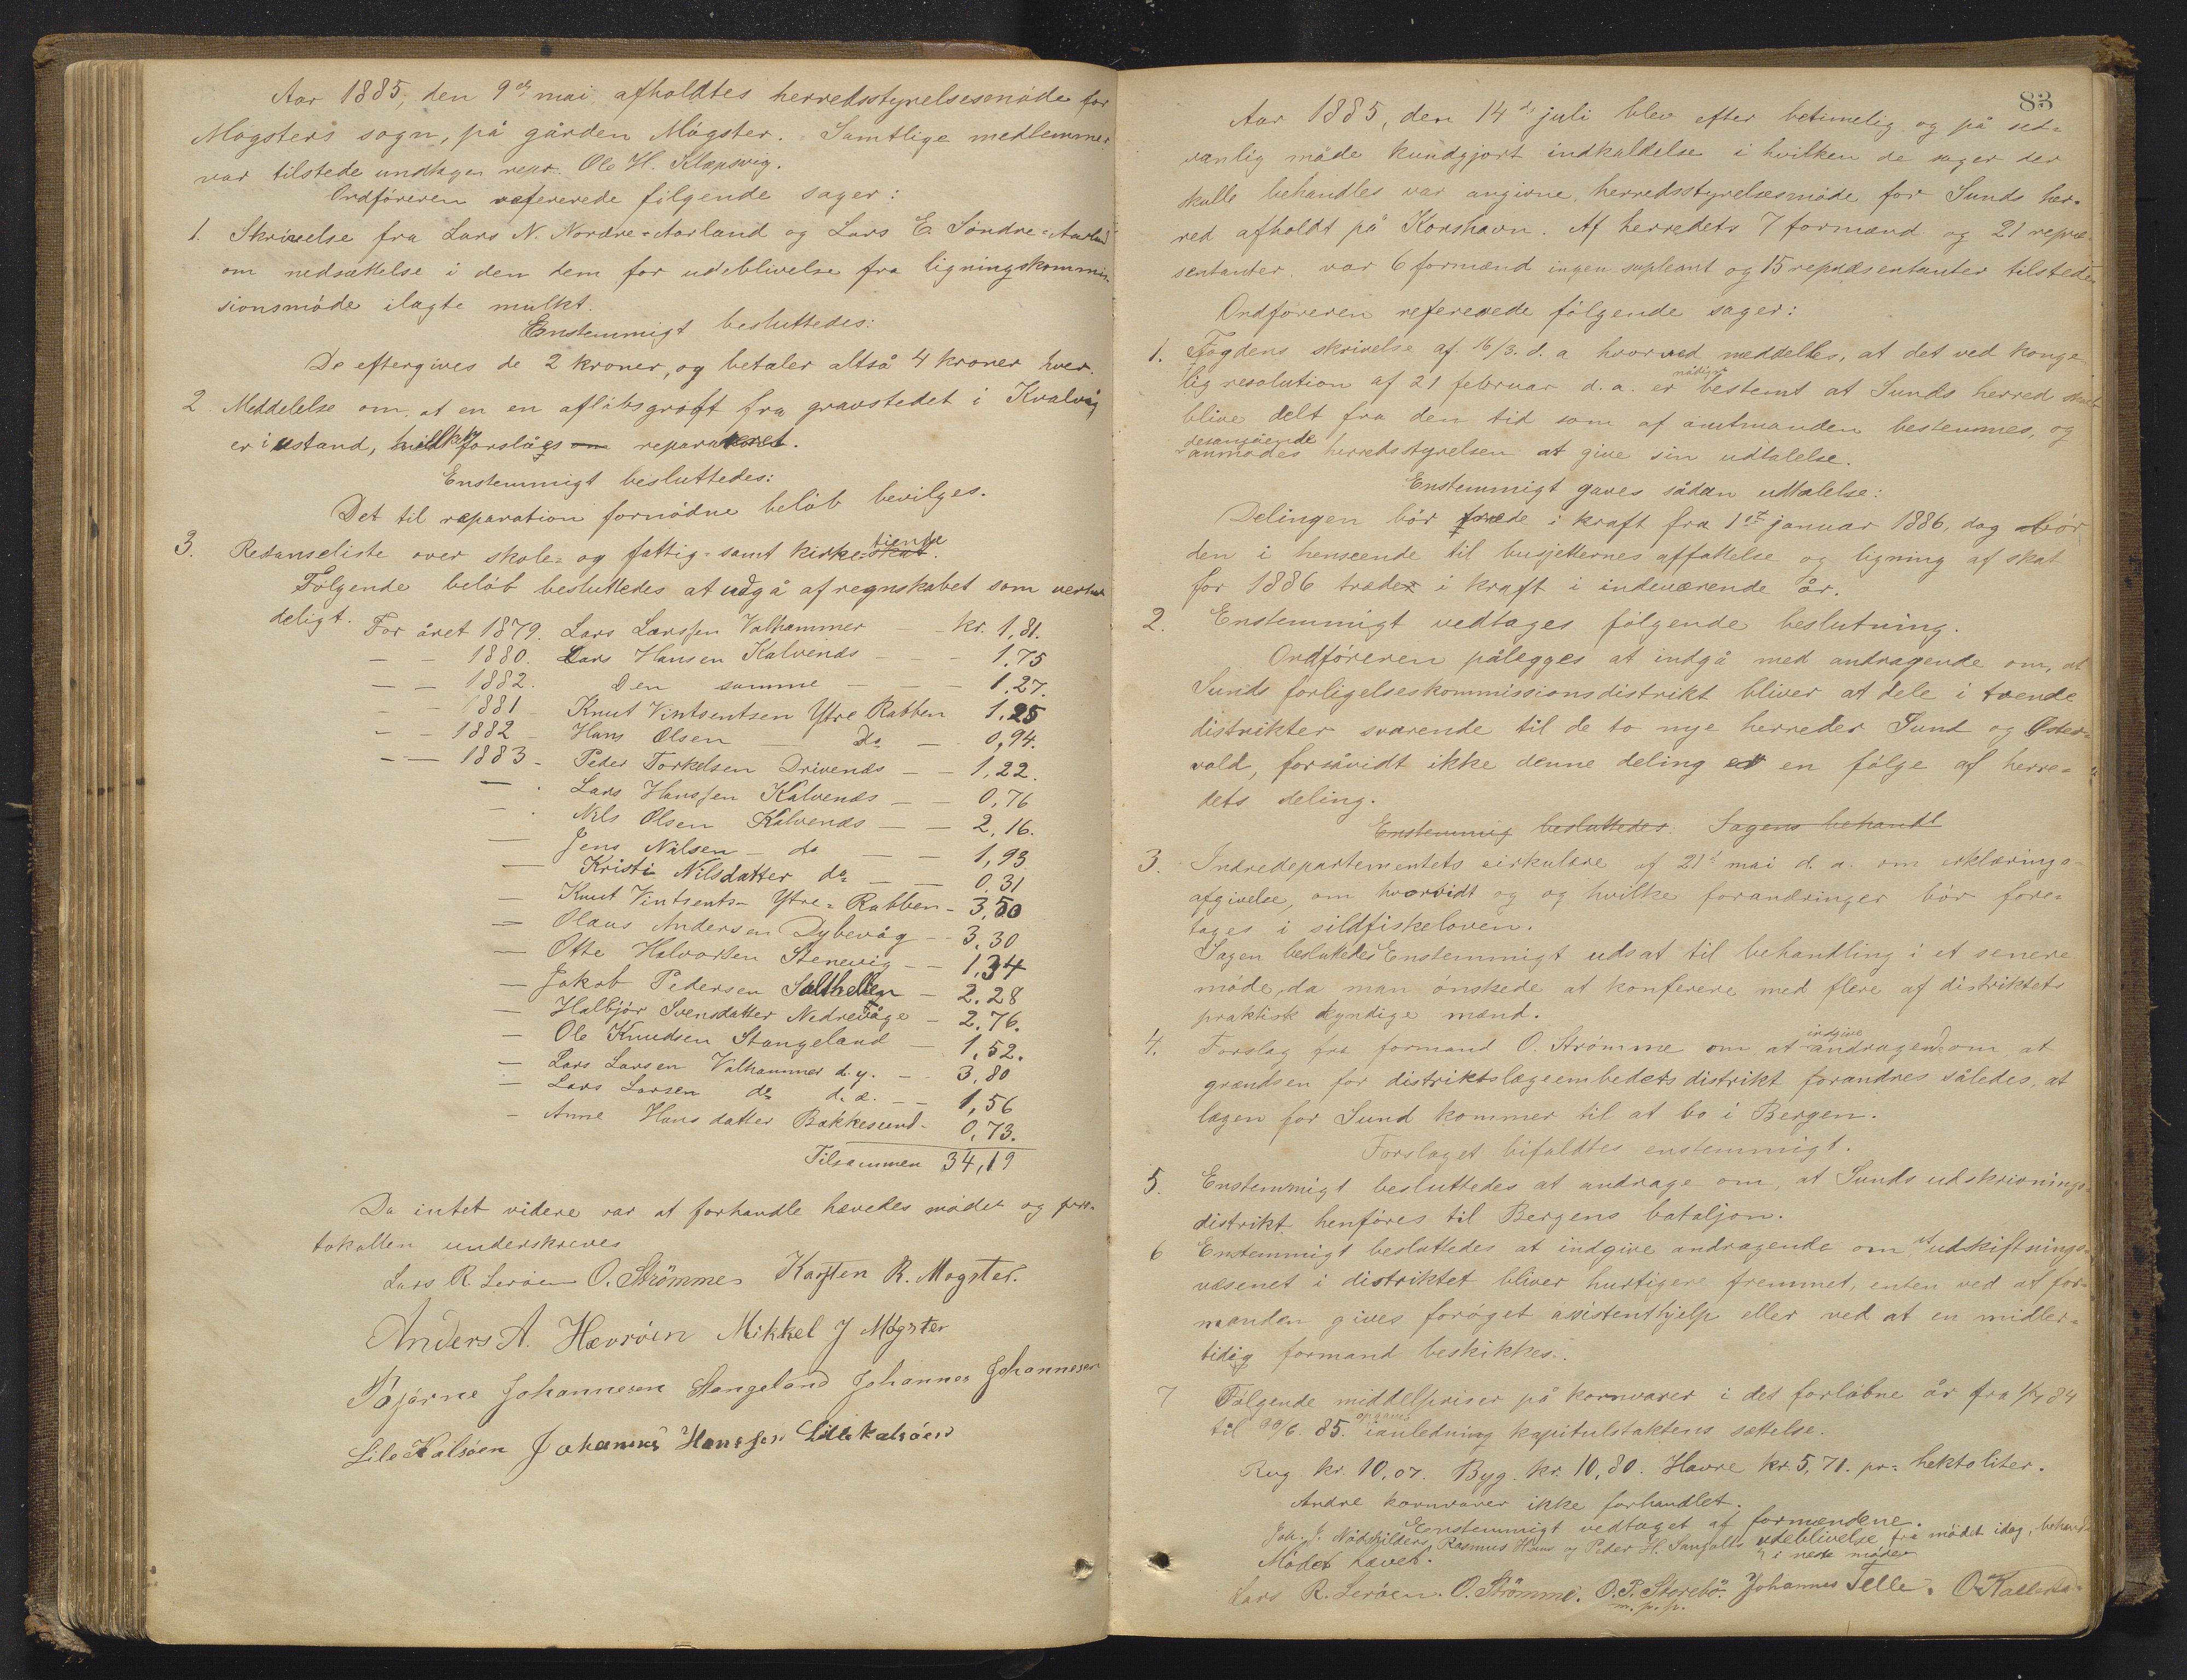 Aar 1885, den 9de mai, afholdtes herredsstyrelsesmöde for
Mögsters sogn, på gården Mögster. Samtlige medlemmer
var tilstede undtagen repr. Ole H. Klæpsvig.
Ordföreren refererede fölgende sager:
1. Skrivelse fra Lars N. Nordre-Aarland og Lars E. Söndre-Aarland
om nedsættelse i den dem for udeblivelse fra ligningskommis
sionsmöde ilagte mulkt.
Enstemmigt besluttedes:
De eftergives de 2 kroner, og betaler altså 4 kroner hver.
2 Meddelelse om, at en en aflöbsgröft fra gravstedet i Kvalvåg
er i ustand, hvilken forslåes om repareret.
Enstemmigt besluttedes:
Det til reparation fornödne belöb bevilges.
3. Restanseliste over skole- og fattig- samt kirketiende skat.
Fölgende belöb besluttedes at udgå af regnskabet som uerhol
deligt.
For året 1879. Lars Larssen Valhammer — kr. 1,81.
— — 1880. Lars Hansen Kalvenæs — — 1,75
— — 1882. Den samme — — 1,27.
— — 1881 — Knut Vintsentsen Ytre Rabben 1,25
— — 1882 — Hans Olsen — Do — 0,94.
— — 1883 — Peder Torkelsen Drivenæs — — 1,22.
— Lars Hanssen Kalvenæs — — 0,76
— Nils Olsen Kalvenæs — — 2,16.
— Jens Nilsen — do — — 1,93
— Kristi Nilsdatter do — — 0,31
— Knut Vintsents- Ytre-Rabben — 3,50
— Olaus Andersen Dybevåg — 3,30
— Otte Halvorsen Stenevig — — 1,34
— Jakob Pedersen Salthellen — 2,28
— Halbjör Svensdatter Nedrevåge — 2,76.
— Ole Knudsen Stangeland — 1,52.
— Lars Larsen Valhammer d.y. — 3,80
— Lars Larsen do d.æ. — — 1,56
— Anne Hansdatter Bakkesund — 0,73.
Tilsammen 34,19
Da intet videre var at forhandle hævedes mödet og pro-
tokollen underskreves
Lars R. Leröen O. Strömme Karsten R. Mögster.
Anders A. Hevröen Mikkel J Mögster
Bjarne Johannesen Stangeland Johannes Johannesen
Lile Kalsöen Johannes Hanssen Lille Kalsöen
83
Aar 1885, den 14de juli blev efter betimelig og på sed-
vanlig måde kundgjort indkaldelse i hvilken de sager der
skulle behandles var angivne, herredsstyrelsesmöde for Sunds her-
red afholdt på Korshavn. Af herredets 7 formænd og 21 repræ-
sentanter, var 6 formænd ingen supleant og 15 repræsentanter tilstede
Ordföreren refererede fölgende sager:
1. Fogdens skrivelse af 16/3. d. a hvorved meddeltes, at det ved konge
lig resolution af 21 februar d. a. er nådigst bestemt at Sunds herred skal
blive delt fra den tid som af amtmanden bestemmes, og
desangående
anmodes herredsstyrelsen at give sin udtalelse.
Enstemmigt gaves sådan udtalelse:
Delingen bör træde i kraft fra 1ste januar 1886, dog bör
den i henseende til busjetternes affattelse og ligning af skat
for 1886 træder i kraft i indeværende år.
2. Enstemmigt vedtages fölgende beslutning.
Ordföreren pålegges at indgå med andragende om, at
Sunds forligelseskommissionsdistrikt bliver at dele i tvende
distrikter svarende til de to nye herreder Sund og Öster-
vold, forsåvidt ikke denne deling er en fölge af herre-
dets deling.
Enstemmig besluttedes: Sagens behandl
3. Indredepartementets cirkulære af 21de mai d. a. om erklærings-
afgivelse, om hvorvidt og og hvilke forandringer bör fore-
tages i sildfiskeloven.
Sagen besluttedes Enstemmigt udsat til behandling i et senere
möde, da man önskede at konferere med flere af distriktets
praktisk kyndige mænd.
4. Forslag fra formand O. Strömme om at indgive andragende om, at
grændsen for distriktslægeembedets distrikt forandres således, at
lægen for Sund kommer til at bo i Bergen.
Forslaget bifaldtes enstemmigt.
5. Enstemmigt besluttedes at andrage om, at Sunds udskrivnings-
distrikt henföres til Bergens bataljon.
6 Enstemmigt besluttedes at indgive andragende om, at udskiftnings-
væsenet i distriktet bliver hurtigere fremmet, enten ved at for-
manden gives foröget assistenthjelp eller ved at en midler-
tidig formand beskikkes.
7 Fölgende middelpriser på kornvarer i det forlöbne år fra 1/7 84
til 30/6. 85. opgaves i anledning kapitulstakstens sættelse.
Rug kr. 10,07. Byg kr. 10,80. Havre kr. 5,71. pr. hektoliter.
Andre kornvarer ikke forhandlet.
Enstemmigt vedtaget af formændene.
Joh. J. Nödskilders, Rasmus Hans og Peder H. Sangolts udeblivelse fra mödet idag, behand-
i neste möde
Mödet hævet.
Lars R. Leröen. O. Strömme. O. P. Storebö. Johannes Telle. O Kallestad.
m. p. p.